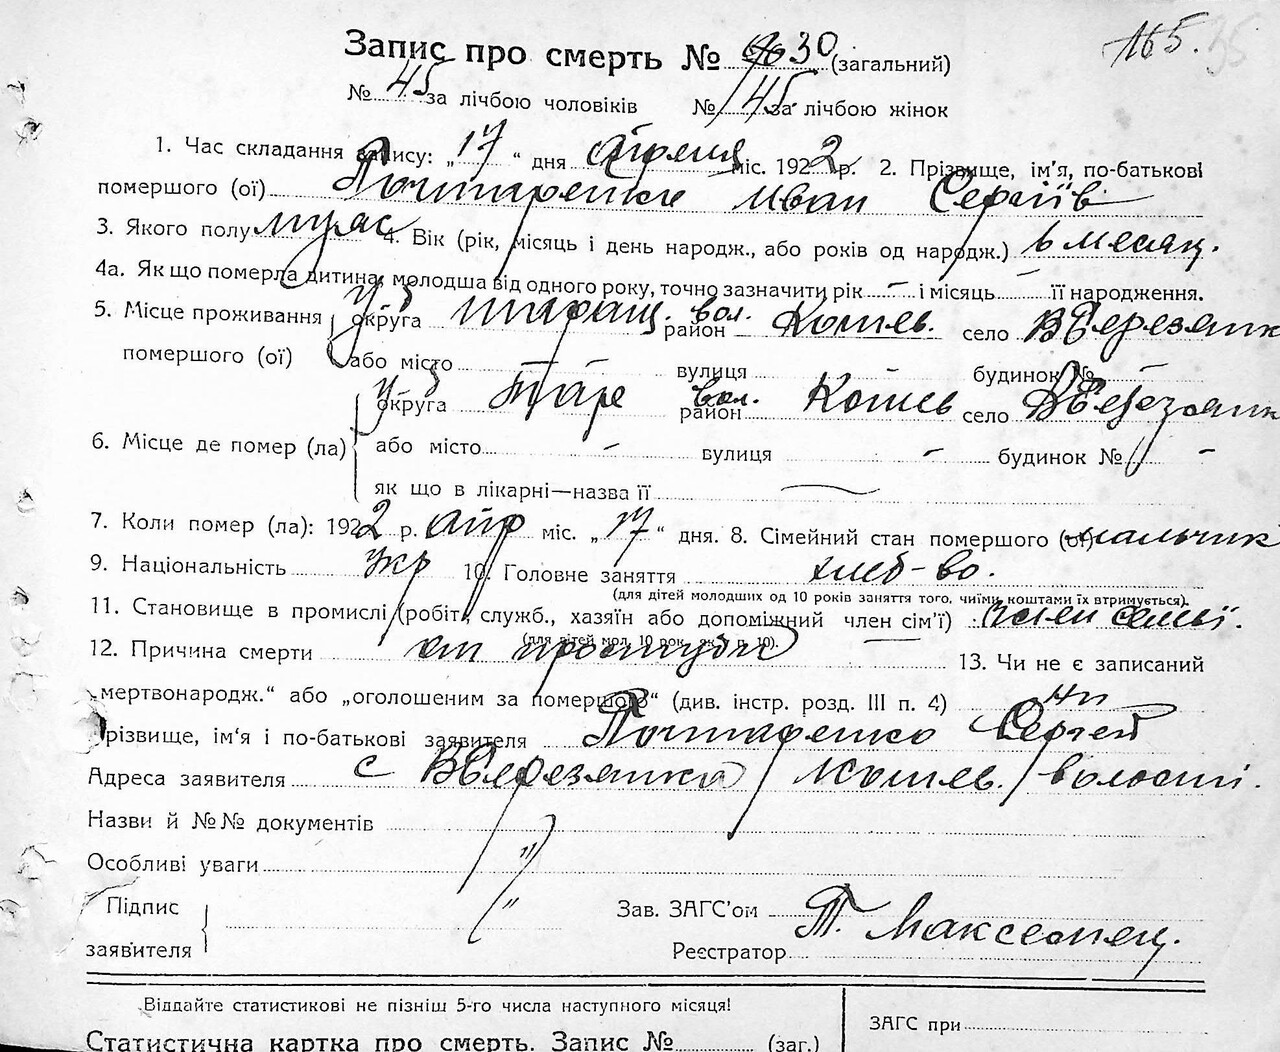 165. 35
Запис про смерть № 30 (загальний)
№ 45 за лічбою чоловіків № 45 за лічбою жінок
1. Час складання запису: „17“ дня Апреля міс. 1922 р. 2. Прізвище, ім'я, по-батькові
помершого (ої) Почтаренко Иван Сергіїв
3. Якого полу муж 4. Вік (рік, місяць і день народж., або років од народж.) 6 месяц.
4а. Як що померла дитина, молодша від одного року, точно зазначити рік - і місяць - її народження.
5. Місце проживання округа Таращ. вол. район Кошев. село ВБерезянк
помершого (ої) або місто - вулиця - будинок № -
округа Тара вол. район Кошев село ВБерезянк
6. Місце де помер (ла) або місто - вулиця - будинок № -
як що в лікарні—назва її —
7. Коли помер (ла): 1922 р. апр міс. „17“ дня. 8. Сімейний стан помершого (ої) мальчик
9. Національність укр 10. Головне заняття хлеб-во.
(для дітей молодших од 10 років заняття того, чиїми коштами їх втримується).
11. Становище в промислі (робіт., служб., хазяїн або допоміжний член сім'ї) член семьї.
(для дітей мол. 10 рок. як в п. 10).
12. Причина смерти от простуды — 13. Чи не є записаний
„мертвонародж.“ або „оголошеним за помершого“ (див. інстр. розд. III п. 4)
Прізвище, ім'я і по-батькові заявителя Почтаренко Сергей
Адреса заявителя с ВБерезянка Кошев. волости.
Назви й №№ документів "
Особливі уваги "
Підпис заявителя
Зав. ЗАГС'ом Т. Максемец.
Реєстратор
Віддайте статистикові не пізніш 5-го числа наступного місяця!
Статистична картка про смерть. Запис № (заг.)
ЗАГС при